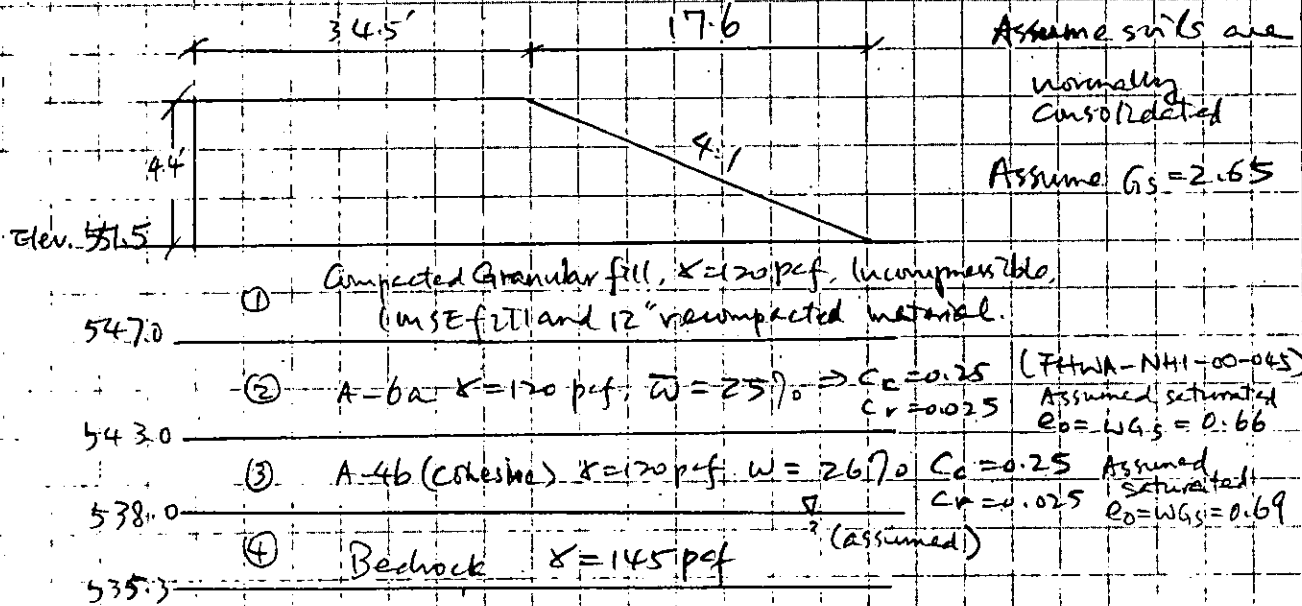 34.5' 17.6
Assume soils are
normally
consolidated
4.4'
4:1
Assume Gs = 2.65
Elev. 551.5
① Compacted Granular fill, γ=120 pcf, Incompressible,
(MSE fill and 12" recompacted material.
547.0
② A-6a γ=120 pcf, w̄=25% ⇒ Cc=0.25 (FHWA-NHI-00-045)
Cr=0.025 Assumed saturated
e₀=wGs=0.66
543.0
③ A-4b (cohesive) γ=120 pcf w=26% Cc=0.25 Assumed
Cr=0.025 saturated
e₀=wGs=0.69
538.0
? (assumed)
④ Bedrock γ=145 pcf
535.3